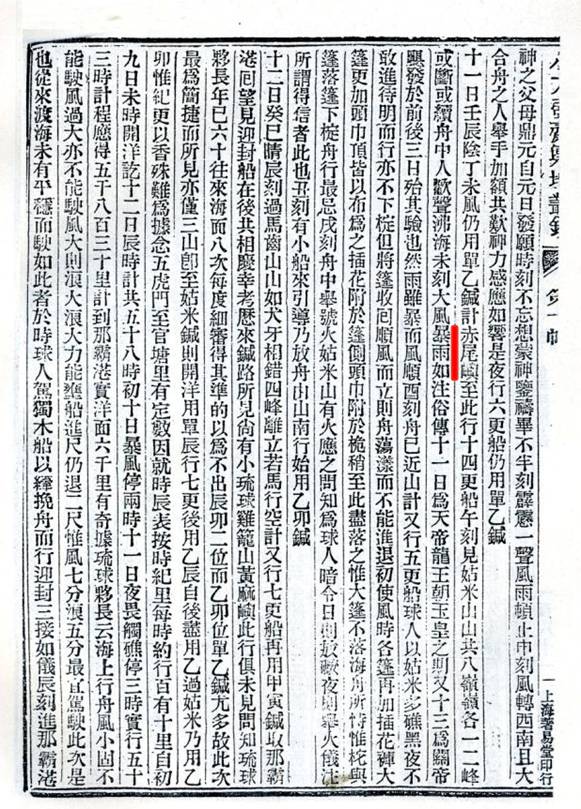 小方壺齋輿地叢鈔 第十帙
上海著易堂印行
神之父母鼎元自元日發願時刻不忘想蒙神鑒禱畢不半刻霹靂一聲風雨頓止申刻風轉西南且大
合舟之人舉手加額共歎神力感應如響是夜行六更船仍用單乙鍼
十一日壬辰陰丁未風仍用單乙鍼計赤尾嶼至此行十四更船午刻見姑米山山共八嶺嶺各一二峰
或斷或續舟中人歡聲沸海未刻大風暴雨如注俗傳十一日爲天帝龍王朝玉皇之期又十三爲關帝
颶發於前後三日殆其驗也然雨雖暴而風順酉刻舟已近山計又行五更船球人以姑米多礁黑夜不
敢進待明而行亦不下椗但將篷收回順風而立則舟蕩漾而不能進退初使風時各篷再加插花褲大
篷更加頭巾頂皆以布爲之插花附於篷側頭巾附於桅梢至此盡落之惟大篷不落海舟所恃惟柁與
篷落篷下椗舟行最忌戌刻舟中舉號火姑米山有火應之問知爲球人暗令日則放礮夜則舉火儀注
所謂得信者此也丑刻有小船來引導乃放舟由山南行始用乙卯鍼
十二日癸巳晴辰刻過馬齒山山如犬牙相錯四峰離立若馬行空計又行七更船再用甲寅鍼取那霸
港囘望見迎封船在後共相慶幸老歷來鍼路所見尚有小琉球雞籠山黃麻嶼此行俱未見問知琉球
夥長年已六十往來海面八次每度細審得其準的以爲不出辰卯二位而乙卯位單乙鍼尤多故此次
最爲簡捷而所見亦僅三山卽至姑米鍼則開洋用單辰行七更後用乙辰自後盡用乙過姑米乃用乙
卯惟紀更以香殊難爲據念五虎門至官塘里有定數因就時辰表按時紀里每時約行百有十里自初
九日未時開洋訖十二日辰時計共五十八時初十日暴風停兩時十一日夜畏觸礁停三時實行五十
三時計程應得五千八百三十里計到那霸港實洋面六千里有奇據琉球夥長云海上行舟風小固不
能駛風過大亦不能駛風大則浪大浪大力能壅船進尺仍退二尺惟風七分浪五分最宜駕駛此次是
也從來渡海未有平穩而駛如此者於時球人駕獨木船以縴挽舟而行迎封三接如儀辰刻進那霸港